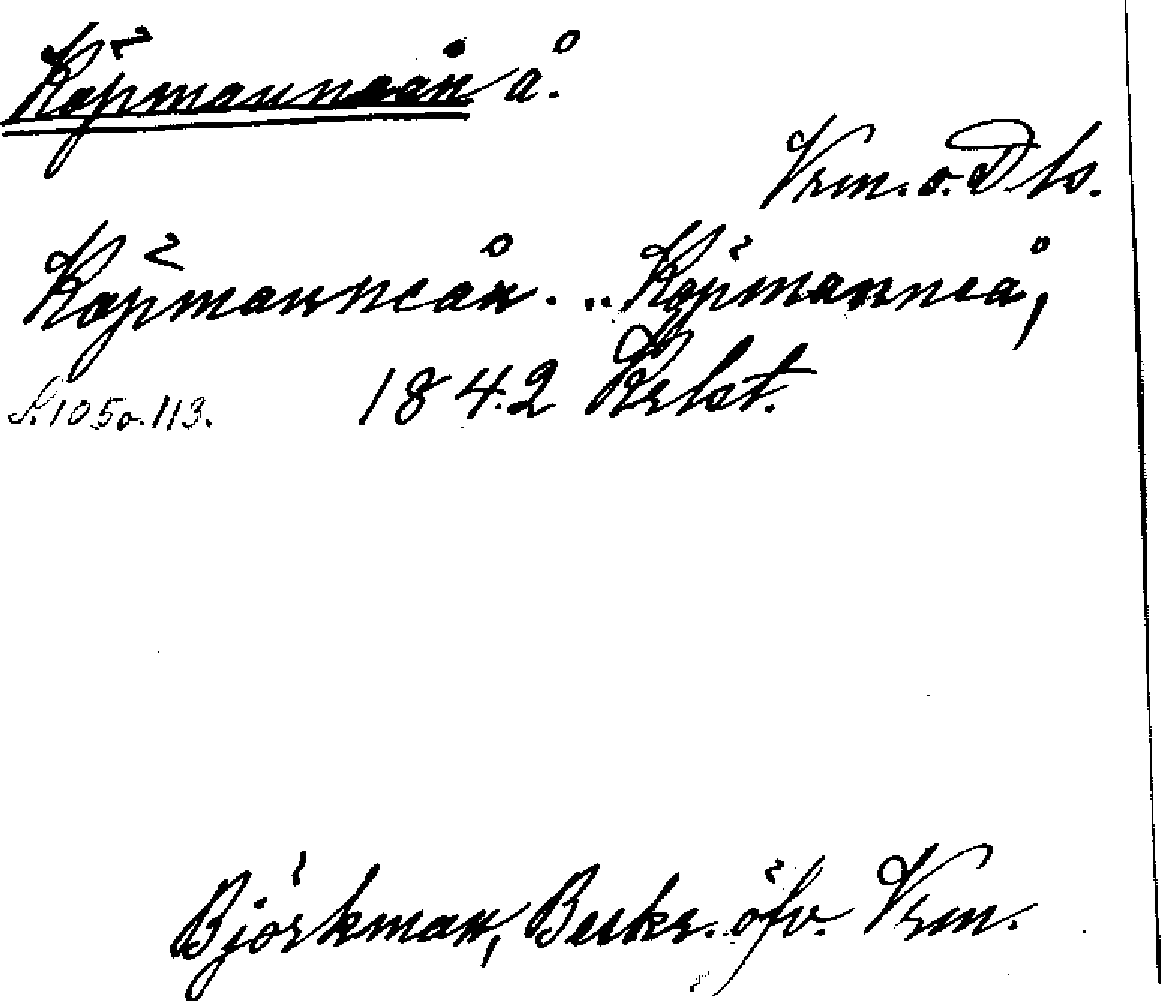 Köpmannaån å.
Vrm. o. Dls.
Köpmanneån. .. Köpmanneå,
S. 105 o. 113. 1842 Krlst.
Björkman, Beskr. öfv. Vrm.